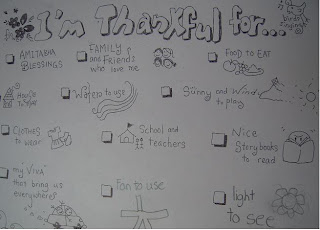 I'm Thankful for...
AMITABHA
BLESSINGS
FAMILY
and Friends
who love me
Food to EAT
House
Water to use
Sunny and Windy
to play
Clothes
to wear
School and
teachers
Nice
Storybooks
to read
my "Viva"
that bring us
everywhere
Fan to use
light
to see